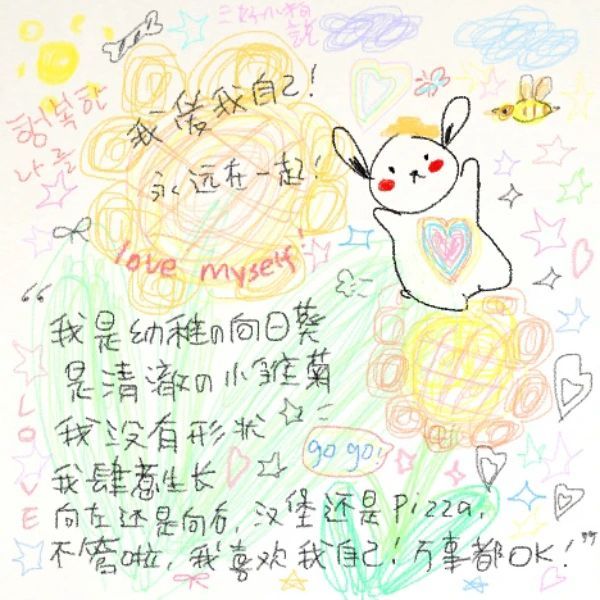 三好小柏
說
我爱我自己!
永远在一起!
행복한
나를
love myself!
“我是幼稚の向日葵
是清澈の小雏菊
我没有形状
我肆意生长
向左还是向右,汉堡还是Pizza,
不管啦,我喜欢我自己!万事都OK!”
go go!
LOVE